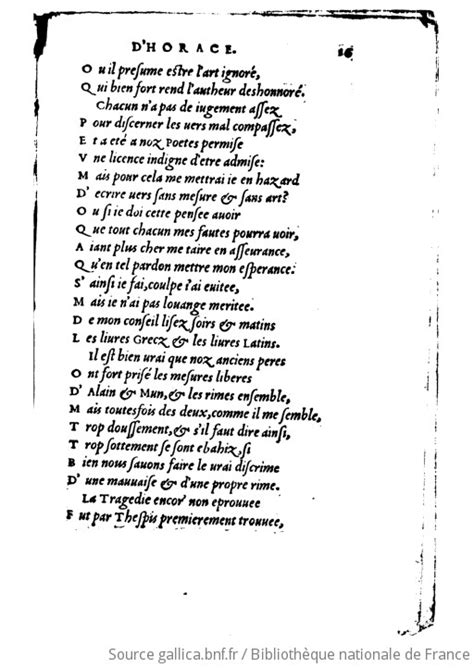 D'HORACE. 16
O u il preſume eſtre l'art ignoré,
Q ui bien fort rend l'autheur deshonnoré.
Chacun n'a pas de iugement aſſez
P our diſcerner les uers mal compaſſez,
E t a eté a noz Poetes permiſe
V ne licence indigne d'etre admiſe:
M ais pour cela me mettrai ie en hazard
D' ecrire uers ſans meſure & ſans art?
O u ſi ie doi cette penſee auoir
Q ue tout chacun mes fautes pourra uoir,
A iant plus cher me taire en aſſeurance,
Q u'en tel pardon mettre mon eſperance:
S' ainſi ie fai, coulpe i'ai euitee,
M ais ie n'ai pas louange meritee.
D e mon conſeil liſez ſoirs & matins
L es liures Grecz & les liures Latins.
Il eſt bien urai que noz anciens peres
O nt fort priſé les meſures liberes
D' Alain & Mun, & les rimes enſemble,
M ais toutesfois des deux, comme il me ſemble,
T rop douſſement, & s'il faut dire ainſi,
T rop ſottement ſe ſont ebahiz, ſi
B ien nous ſauons faire le urai diſcrime
D' une mauuaiſe & d'une propre rime.
La Tragedie encor' non eprouuee
F ut par Theſpis premierement trouuee,
Source gallica.bnf.fr / Bibliothèque nationale de France